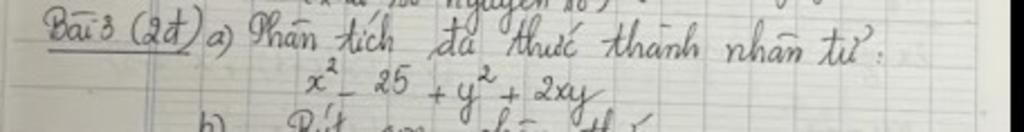 Bài 3 (2đ) a) Phân tích đa thức thành nhân tử:
x² - 25 + y² + 2xy
b) Rút